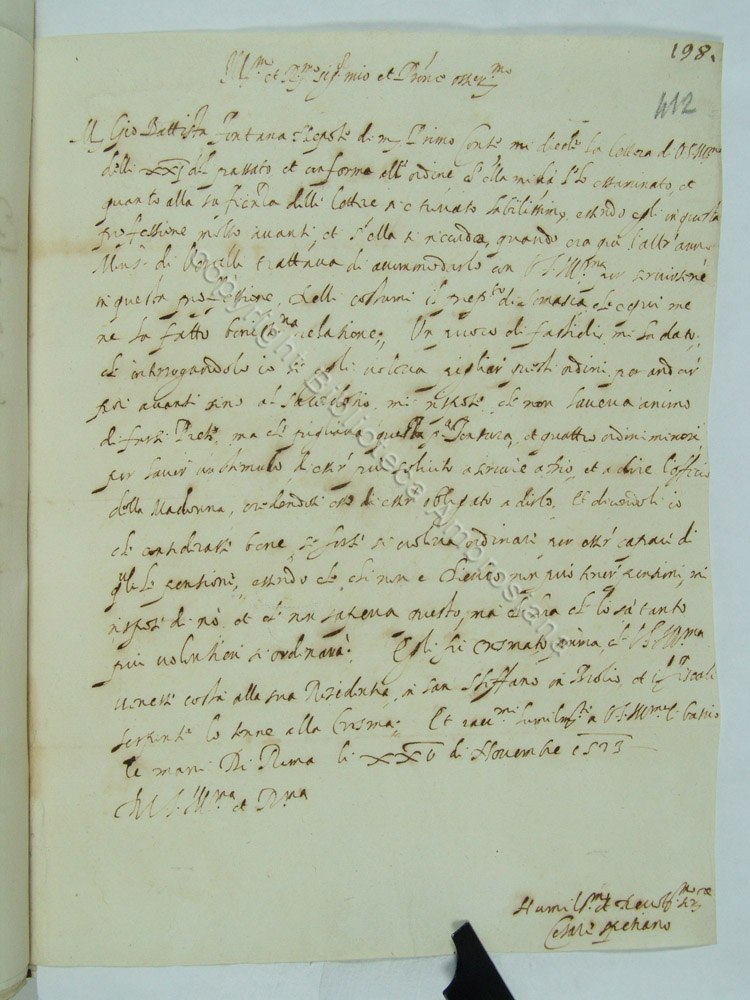 198.
412
Ill.mo et R.mo sig.r mio et Prône osser.mo
M. Gio Battista Fontana Nepote di m. Primo Conte mi diede la lettera di V.S. Ill.ma
delli XXJ del passato et conforme all'ordine ch'ella mi dà l'ho essaminato, et
quanto alla sufficienza delle lettere si è trovato habilissimo, essendo egli in questa
professione molto avanti, et s'ella si ricorda, quando era qui l'altr'anno
Mons.r di Vercelli trattava di accommodarlo con V.S. Ill.ma per servirsene
in questa professione, delli costumi il di Somasca, che è qui me
ne ha fatto bonis.ma relatione; Un poco di fastidio mi ha dato,
che interrogandolo io se egli voleva pigliar questi ordini per andar
poi avanti sino al Sacerdotio, mi rispose che non haveva animo
di farsi Prete, ma che pigliava questa p.a Tonsura, et quattro ordini minori
per haver un stimulo di esser più sollicito a servire a Dio, et a dire l'officio
della Madonna, credendosi esso di esser obligato a dirlo, Et dicendoli io
che considerasse bene, se forse si voleva ordinare per esser capace di
qualche pensione, essendo che chi non è Clerico non può haver pensioni, mi
rispose di nò, et che non sapeva questo, ma che hora che lo sà tanto
più volentieri si ordinarà; Egli fù cresmato prima, che V.S. Ill.ma
venesse costì alla sua Residenza, in san Steffano in Brolio, et il fiscal
serpente lo tenne alla Cresma; Et racc.mi humilm.te a V.S. Ill.ma li bascio
le mani Di Roma li XXV di Novembre 1573
Di V.S. Ill.ma et R.ma
Humiliss.mo et devotiss.mo ser.re
Cesare Speciano
copyright Biblioteca Ambrosiana